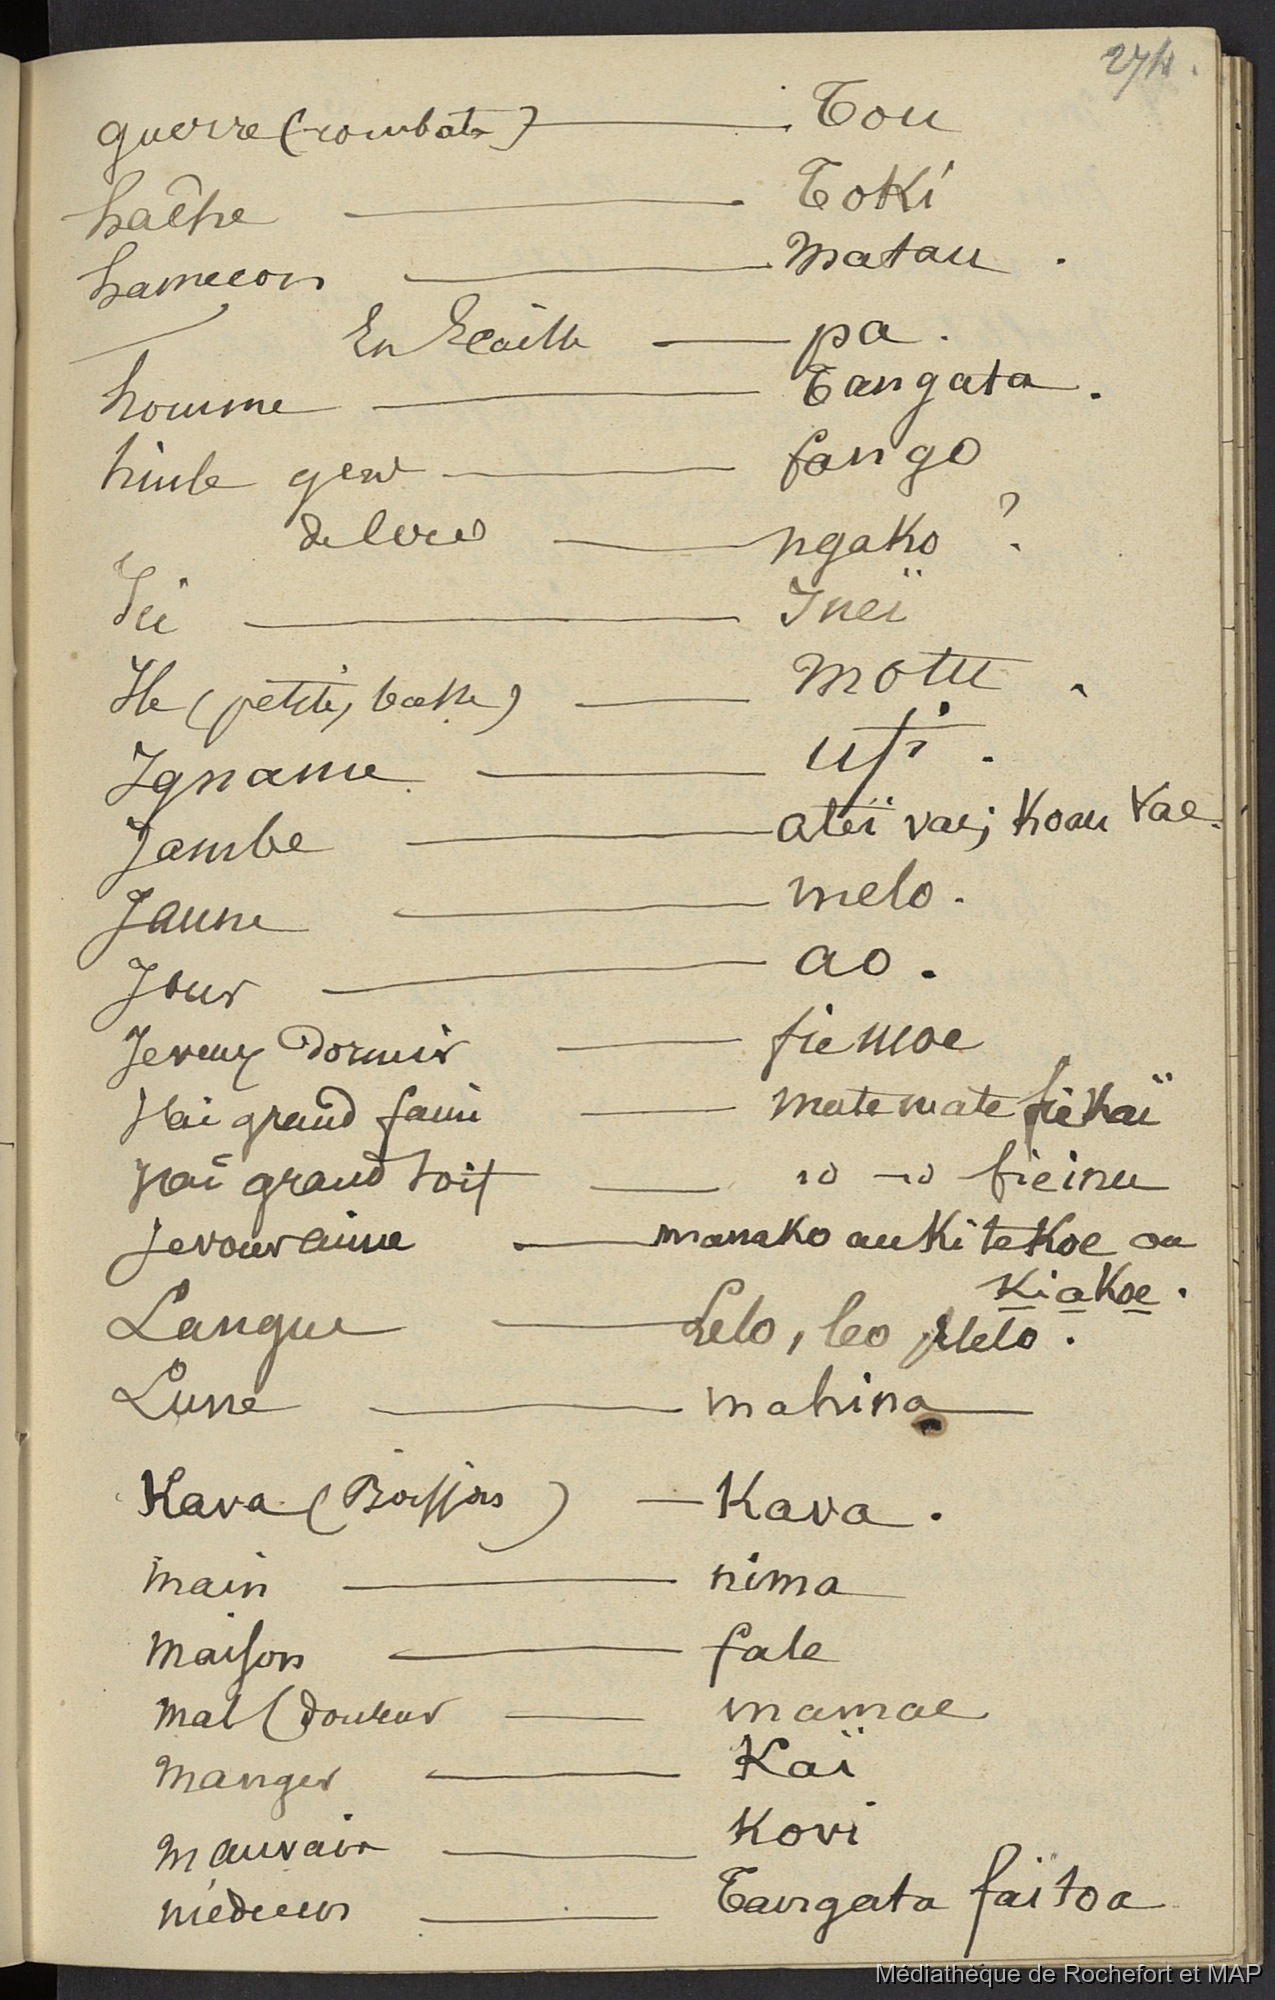 274.
guerre (combats) — Tou
hâche — Toki
hameçon — matau.
En Ecaille — pa.
homme — Tangata.
huile gew — fango
de — ngako ?
Ici — Ineï
Ile (petite, basse) — motu
Igname — ufi.
Jambe — ateï vae; Koau vae.
Jaune — melo.
Jour — ao.
Je veux Dormir — fie moe
J'ai grand faim — mate mate fiekaï
J'ai grand soif — " — " fieinu
Je vous aime — manako au Ki te Koe ou
Ki a Koe.
Langue — Lelo, leo, elelo.
Lune — mahina
Kava (Boisson) — Kava.
main — nima
maison — fale
mal (douleur — mamae
manger — Kaï
mauvais — Kovi
médecin — Tangata faïtoa
Médiathèque de Rochefort et MAP